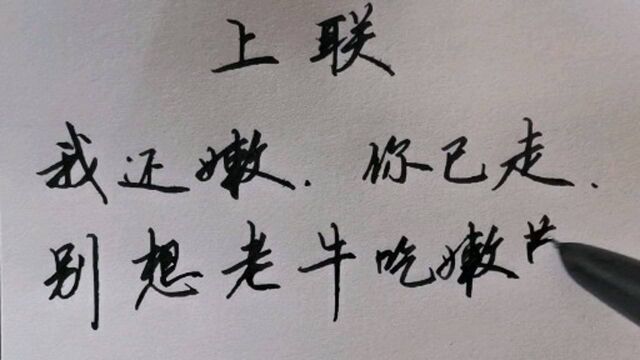 上联
我还嫩.你已走.
别想老牛吃嫩